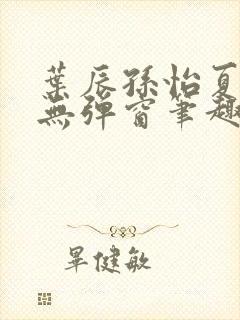 葉辰孫怡夏
無彈窗筆趣
畢健敏